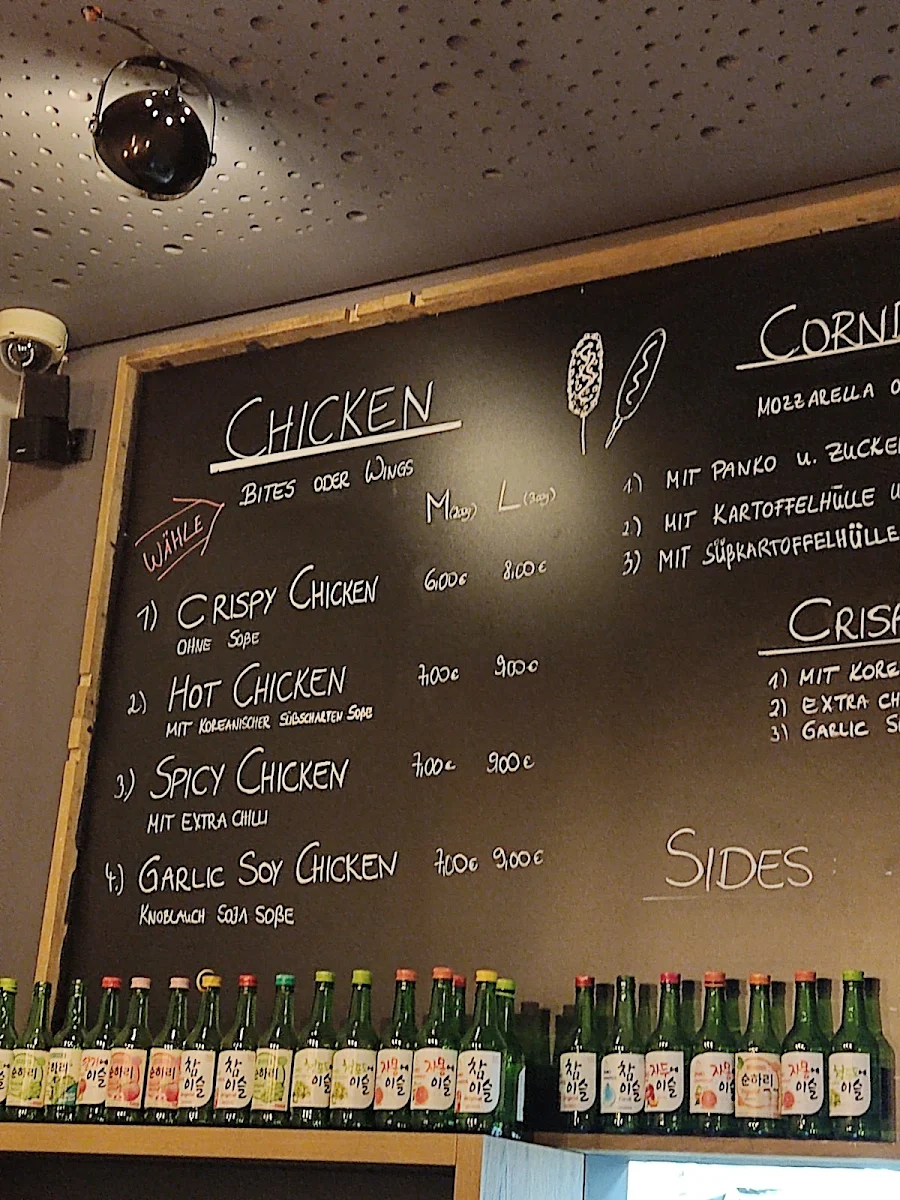 CHICKEN
BITES ODER WINGS
WÄHLE
M L
1) CRISPY CHICKEN 6,00€ 8,00€
OHNE SOßE
2) HOT CHICKEN 7,00€ 9,00€
MIT KOREANISCHER SÜßSCHARFEN SOßE
3.) SPICY CHICKEN 7,00€ 9,00€
MIT EXTRA CHILLI
4.) GARLIC SOY CHICKEN 7,00€ 9,00€
KNOBLAUCH SOJA SOßE
CORN
MOZZARELLA
1) MIT PANKO U. ZUCKE
2.) MIT KARTOFFELHÜLLE
3) MIT SÜßKARTOFFELHÜLLE
CRISP
1) MIT KORE
2) EXTRA CH
3) GARLIC S
SIDES
참이슬
참이슬
참이슬
참이슬
자두에이슬
자몽에이슬
순하리
자몽에이슬